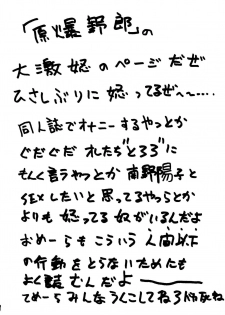 「原爆野郎」の
大激怒のページだぜ
ひさしぶりに怒ってるぜ〜〜....
同人誌でオナニーするやつとか
ぐだぐだオレたち"とろろ"に
もんく言うやつとか 南野陽子と
SEXしたいと思ってるやつらとか
よりも怒ってる奴がいるんだよ
おめーらもこういう人間以下
の行動をとらないためにも
よく読むんだよ
てめーらみんなうんこしてねろ死ね